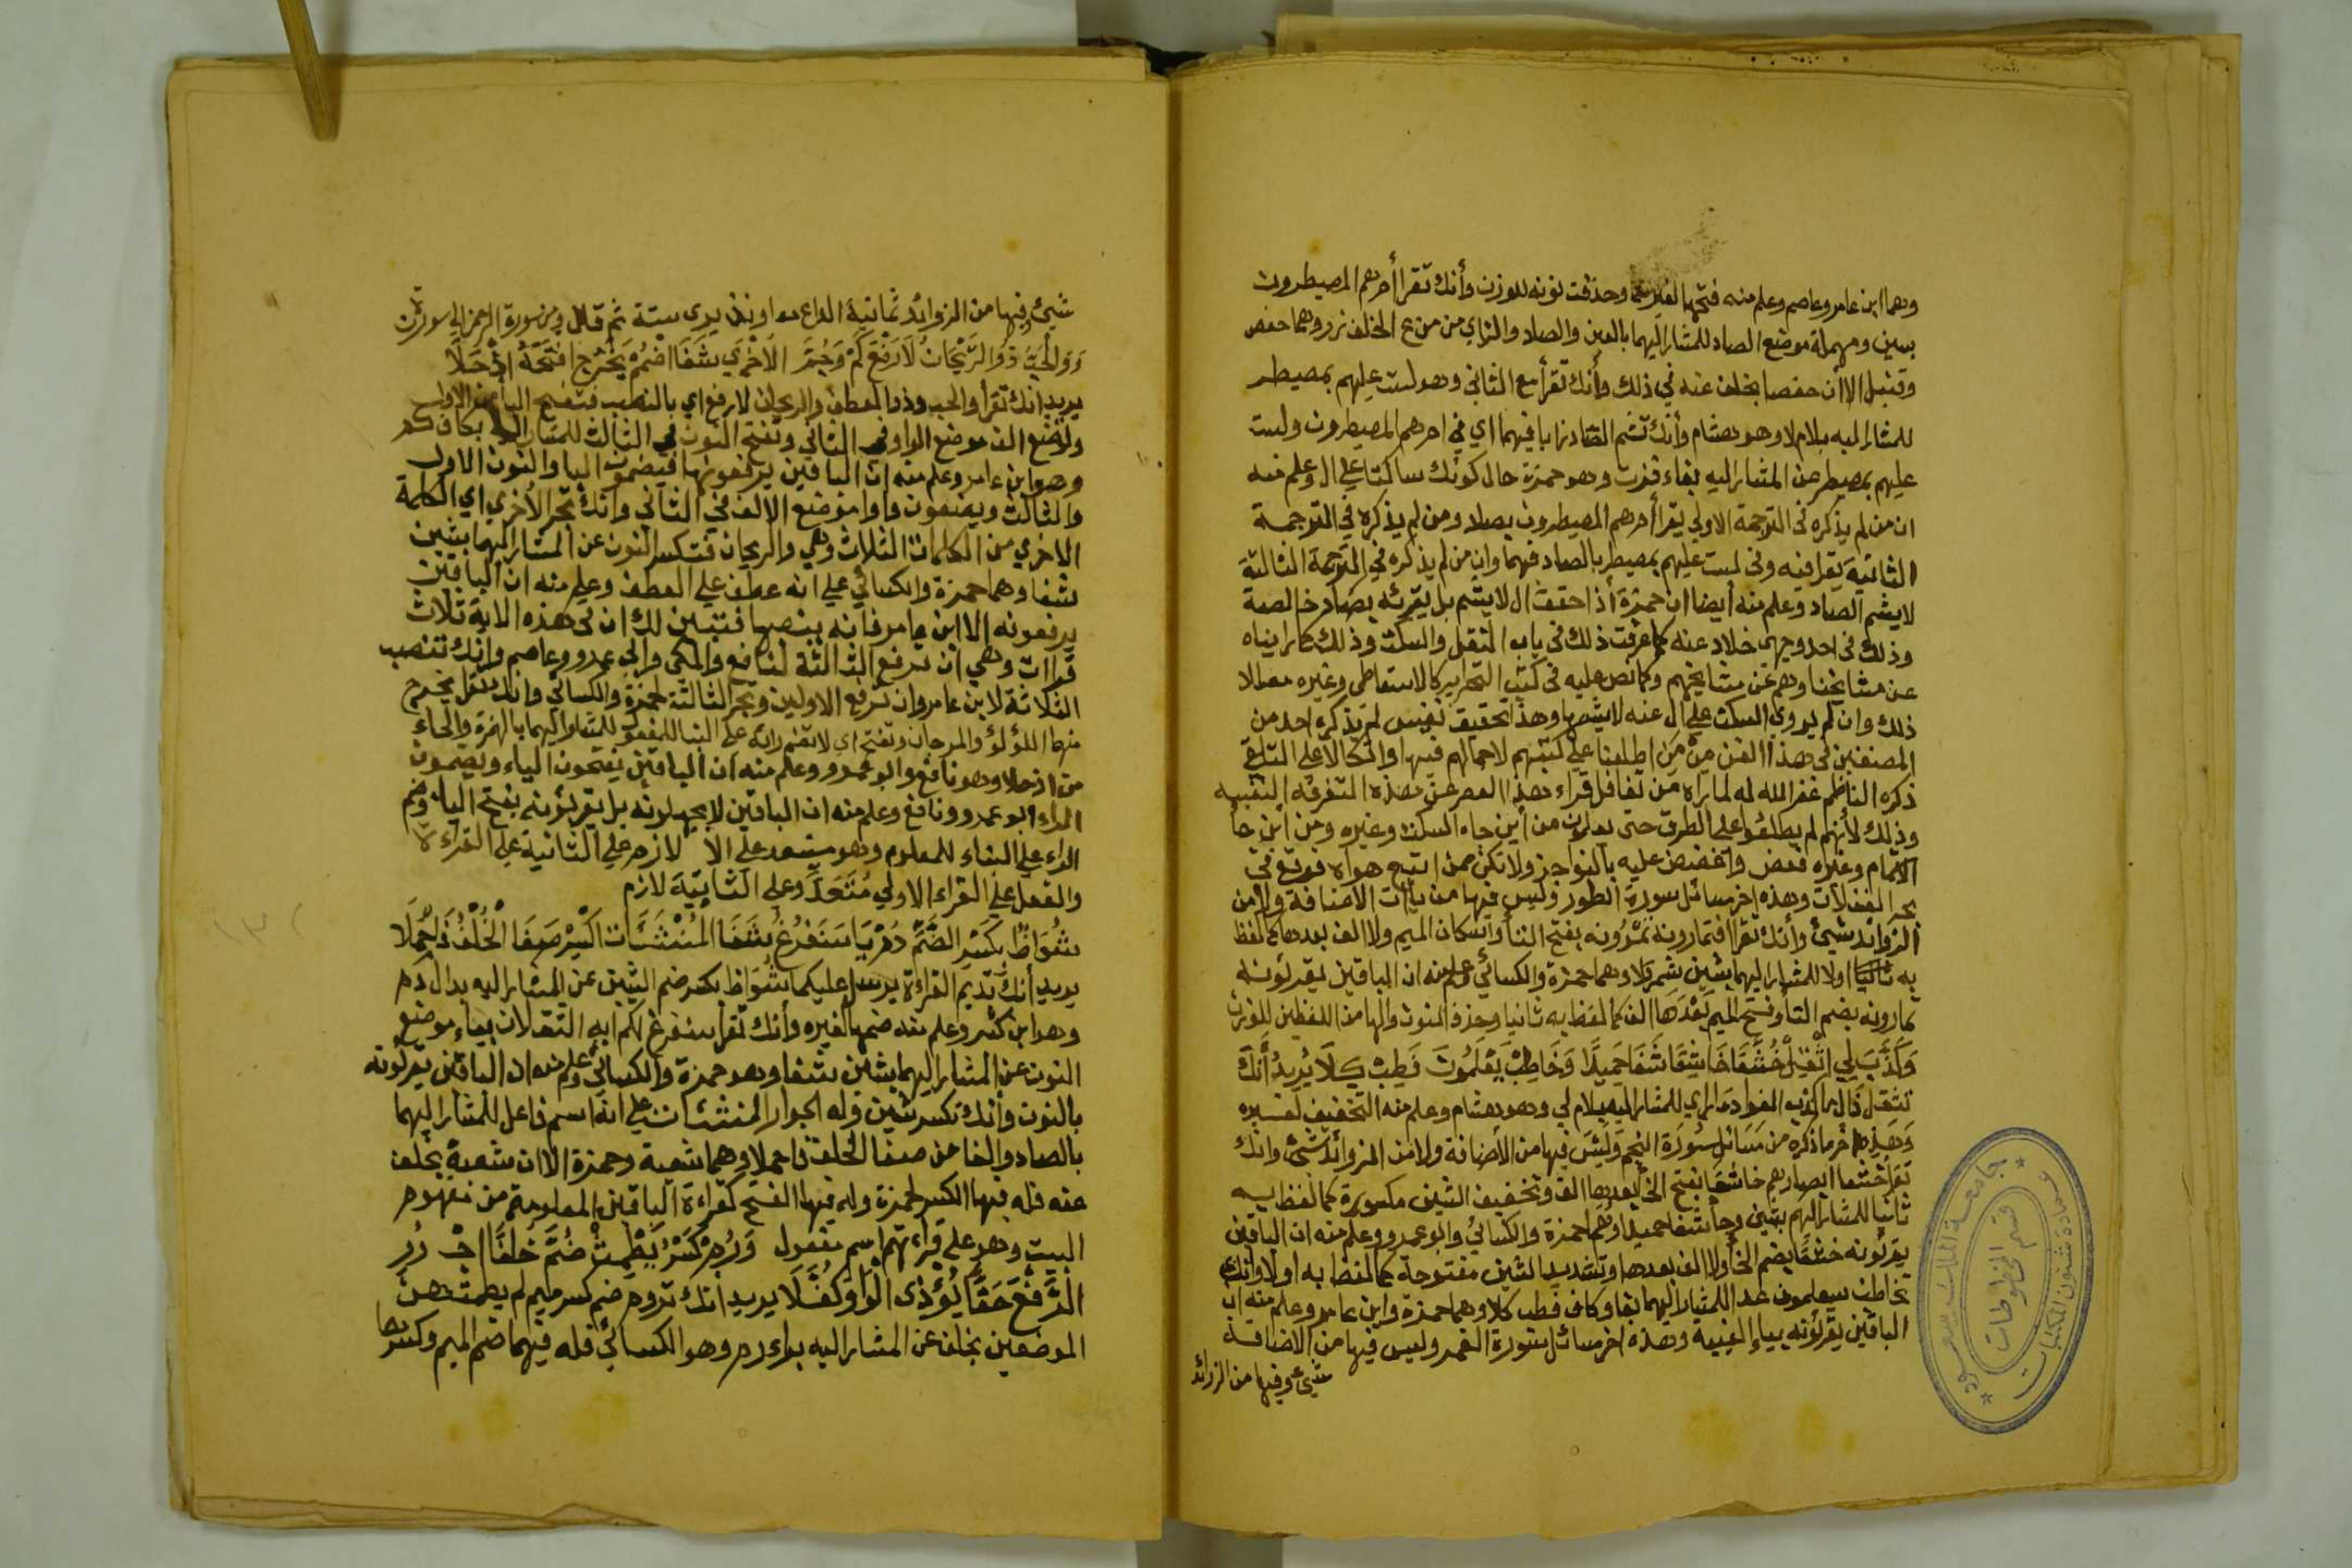 وهما ابن عامر وعاصم وعلم منه فتحها لغيرهما وحذفت نونه للوزن وأنك تقرأ أم هم المصيطرون
بسين ومهملة موضع الصاد للمشار اليهما بالعين والصاد والزاي من من ع الخلف زر وهما حفص
وقنبل الا أن حفصا بخلف عنه في ذلك وأنك تقرأ مع الثاني وهو لست عليهم بمصيطر
للمشار اليه بلام لا وهو هشام وأنك تشم الصاد زايا فيهما اي في ام هم المصيطرون ولست
عليهم بمصيطر عن المشار اليه بفاء فزت وهو حمزة حال كونك ساكتا على ال وعلم منه
ان من لم يذكره في الترجمة الاولي يقرأ أم هم المصيطرون بصاد ومن لم يذكره في الترجمة
الثانية يقرا فيه وفي لست عليهم بمصيطر بالصاد فيهما وان من لم يذكره في الترجمة الثالثة
لا يشم الصاد وعلم منه أيضا ان حمزة أذا حقق ال لا يشم بل يقرئه بصاد خالصة
وذلك في احد وجهي خلاد عنه كما عرفت ذلك في باب النقل والسكت وذلك كما رايناه
عن مشائخنا وهم عن مشايخهم وكما نص عليه في كتب التحرير كالاسقاطي وغيره معللا
ذلك وان لم يروي السكت على ال عنه لا يشمها وهذا تحقيق نفيس لم يذكره احد من
المصنفين في هذا الفن من من اطلعنا على كتبهم لاجمالهم فيها واتكالا على التلقي
ذكره الناظم غفر الله له لما رآه من تغافل قراء هذا العصر عن هذه التفرقه النفيسه
وذلك لأنهم لم يطلعوا على الطرق حتى يدلون من أين جاء السكت وغيره ومن أين جأ
الاشمام وغيره فعض وأغضض عليه بالنواجذ ولا تكن ممن اتبع هواه فوقع في
بحر الغفلات وهذه اخر مسائل سورة الطور وليس فيها من ياآت الاضافة ولا من
الزوائد شيئ وأنك تقرا افتمارونه تمرونه بفتح التأ واسكان الميم ولا الف بعدها كما لفظ
به ثانيا اولا للمشار اليهما بشين شمر ولا وهما حمزة والكسائي وعلم منه ان الباقين يقرئونه
تمارونه بضم التأ وفتح الميم بعدها الف كما لفظ به ثانيا وحذف النون والها من اللفظين للوزن
وكذب لي اثقل خشعا خاشعا شفا حميدا وخاطب يعلمون فطب كلا يريد أنك
تثقل ذال ما كذب الفواد ما راي للمشار اليه بلام لي وهو هشام وعلم منه التخفيف لغيره
وهذه اخر ما ذكره من مسائل سورة النجم وليس فيها من الأضافة ولا من الزوائد شيئ وانك
تقرأ خشعا ابصارهم خاشعا بفتح الخأ بعدها الف وتخفيف الشين مكسورة كما لفظ به
ثانيا للمشار اليهم بشين وحأ شفا حميدا وهم حمزة والكسائي وابو عمرو وعلم منه ان الباقين
يقرئونه خشعا بضم الخأ ولا الف بعدها وتشديد الشين مفتوحة كما لفظ به اولا وأنك
تخاطب سيعلمون غدا للمشار اليهما بفا وكاف فطب كلا وهما حمزة وابن عامر وعلم منه ان
الباقين يقرئونه بياء الغيبة وهذه اخر مسائل سورة القمر وليس فيها من الاضافة
شيئ وفيها من الزوائد
جامعة الملك سعود
عمادة شئون المكتبات
قسم المخطوطات
شيئ وفيها من الزوائد ثمانية الداع معا ونذري ستة ثم قال ومن سورة الرحمن الي سورة ن
ووالحب ذو الريحان لا رفع كم وجر الاخري شفا اضمم يخرج افتحه اذ حلا
يريد انك تقرأ والحب وذا العطف والريحان لا رفع اي بالنصب فتفتح الباء من الاول
وتضع الف موضع الواو في الثاني وتفتح النون في الثالث للمشار اليه بكاف كم
وهو ابن عامر وعلم منه ان الباقين يرفعونها فيضمون البا والنون الاول
والثالث ويضعون واوا موضع الالف في الثاني وانك تجر الأخري اي الكلمة
الاخري من الكلمات الثلاث وهي والريحان فتكسر النون عن المشار اليهما بشين
شفا وهما حمزة والكسائي على انه عطف علي العطف وعلم منه ان الباقين
يرفعونه الا ابن عامر فانه ينصبها فتبين لك ان في هذه الاية ثلاث
قراات وهي ان ترفع الثالثة لنافع والمكي وابي عمرو وعاصم وانك تنصب
الثلاثة لابن عامر وان ترفع الاولين وتجر الثالثة لحمزة والكسائي وانك تقرأ يخرج
منهما اللؤلؤ والمرجان وتفتح اي لا تضم رائه على البنا للمفعول للمشار اليهما بالهمزة والحاء
من اذ حلا وهو نافع وابو عمرو وعلم منه ان الباقين يفتحون الياء ويضمون
الراء ابو عمرو ونافع وعلم منه ان الباقين لا يجهلونه بل يقرئونه بفتح اليا وضم
الراء علي البناء للمعلوم وهو متعد على الا لازم علي الثانية علي القراءة
والفعل علي القراء الاولي متعد وعلى الثانية لازم
شواظ بكسر الضم دم يا سنفرغ شفا المنشئات اكسر صفا الخلف فاجملا
يريد أنك تديم القراءة يرسل عليكما شواظ بكسر ضم الشين عن المشار اليه بدال دم
وهو ابن كثير وعلم منه ضمها لغيره وأنك تقرأ سنفرغ لكم ايه الثقلان بياء موضع
النون عن المشار اليهما بشين شفا وهو حمزة والكسائي وعلم منه ان الباقين يقرئونه
بالنون وأنك تكسر شين وله الجوار المنشئات على انه اسم فاعل للمشار اليهما
بالصاد والفا من صفا الخلف فاجملا وهما شعبة وحمزة الا ان شعبة بخلف
عنه فله فيها الكسر لحمزة وله فيها الفتح كقراءة الباقين المعلومة من مفهوم
البيت وهو علي قراءتهم اسم مفعول ورم كسر يطمث ضم خلفا
الرفع حقا يؤذي الواو كفلا يريد انك تروم ضم كسر ميم لم يطمثهن
الموضعين بخلف عن المشار اليه براء رم وهو الكسائي فله فيهما ضم الميم وكسرها